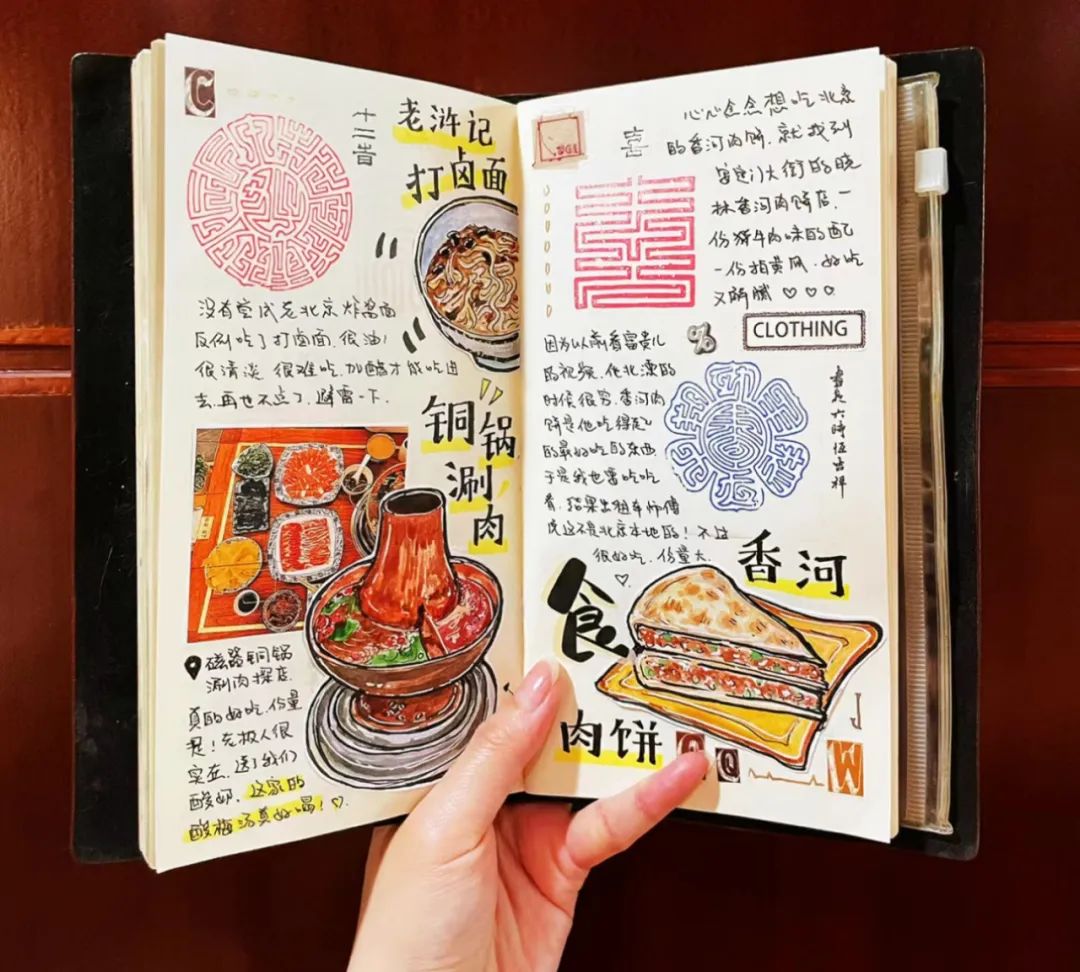 C
老浒记
打卤面
没有尝试老北京炸酱面
反倒吃了打卤面.很油!
很清淡 很难吃.加醋才能吃进
去.再也不点了.避雷一下.
铜锅
涮肉
磁器铜锅
涮肉探店.
真的好吃.份量
足!老板人很
实在.送了我们
酸奶.这家的
酸梅汤真好喝!♡.
心心念念想吃北京
的香河肉饼.就找到
安定门大街的晓
林香河肉饼店.一
份猪牛肉味的配
一份拍黄瓜.好吃
又解腻 ♡♡♡
%
CLOTHING
因为以前看富贵儿
的视频.他北漂的
时候很穷.香河肉
饼是他吃得起
的最好吃的东西
于是我也要吃吃
看.结果出租车师傅
说这不是北京本地的!不过
很好吃.份量大.
♡
昼夜六時恆吉祥
香河
食
肉饼
Q
J
W